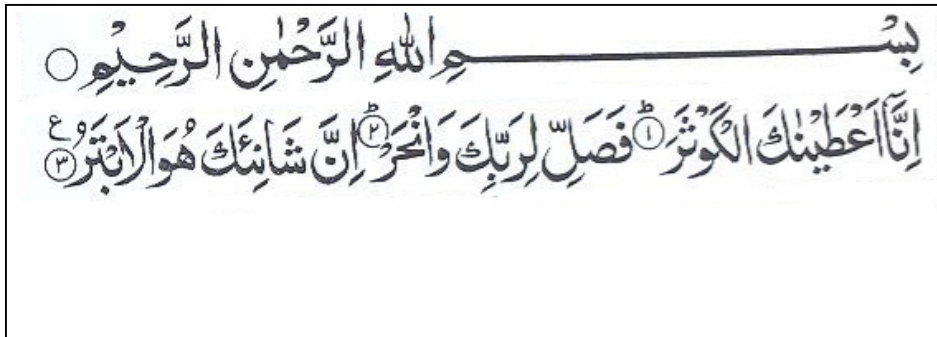 بِسْــــــــــمِ اللهِ الرَّحْمٰنِ الرَّحِيْمِ ○
اِنَّآ اَعْطَيْنٰكَ الْكَوْثَرَ ؕ‏﴿۱﴾ فَصَلِّ لِرَبِّكَ وَانْحَرْ ؕ‏﴿۲﴾ اِنَّ شَانِئَكَ هُوَ الْاَبْتَرُ ﴿۳﴾ ع